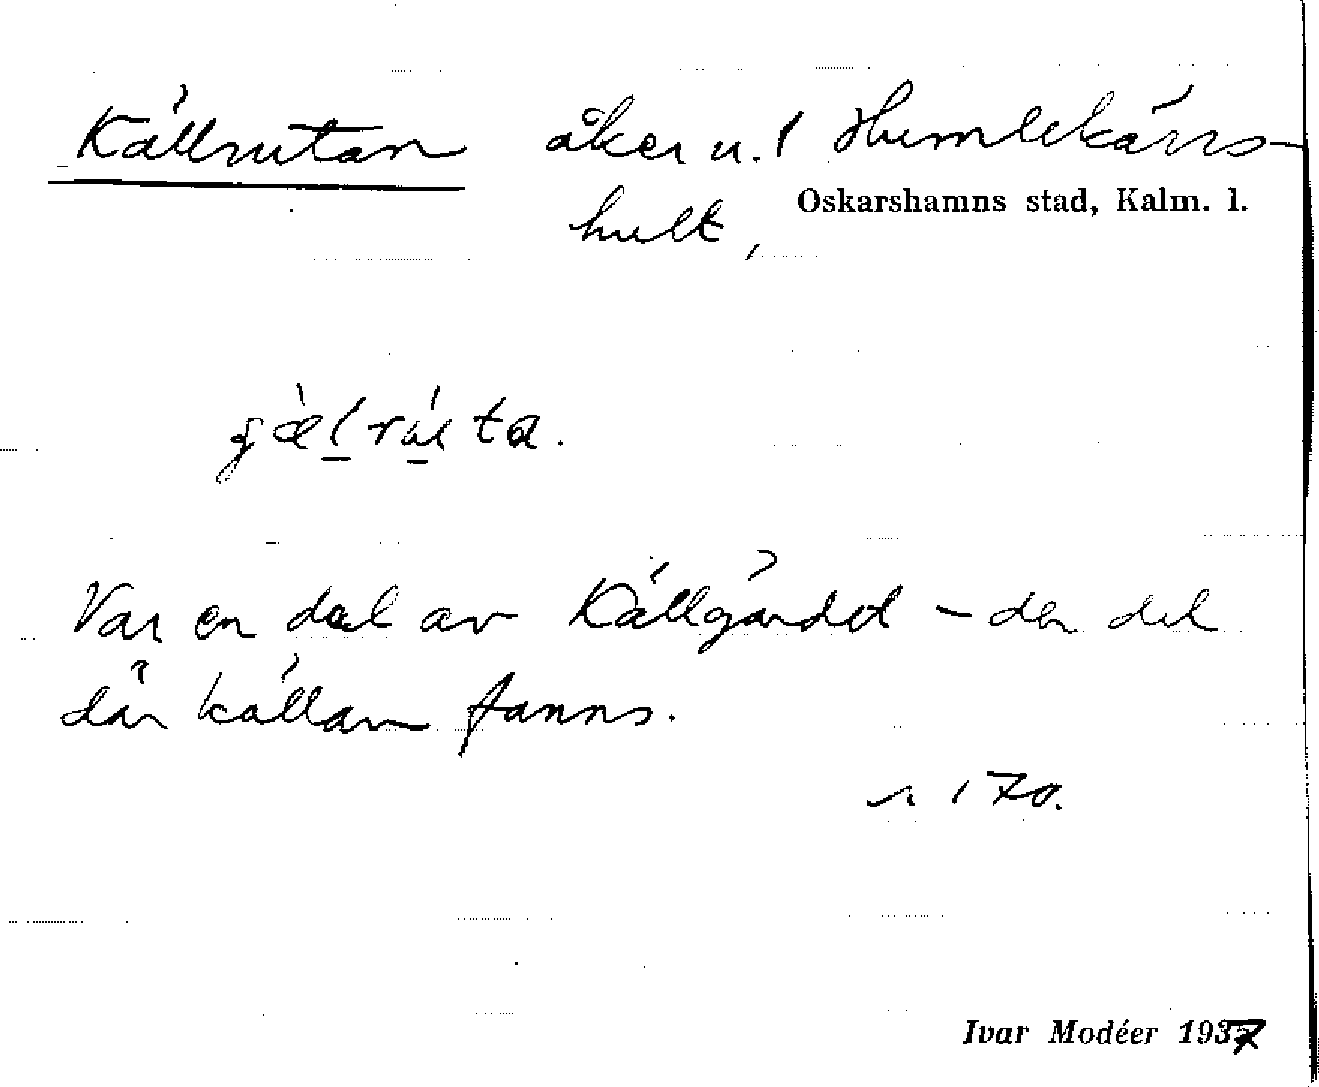 Källrutan åker u. Humlekärrs-
hult, Oskarshamns stad, Kalm. l.
Var en del av Källgärdet – den del
där källan fanns.
170.
Ivar Modéer 1937